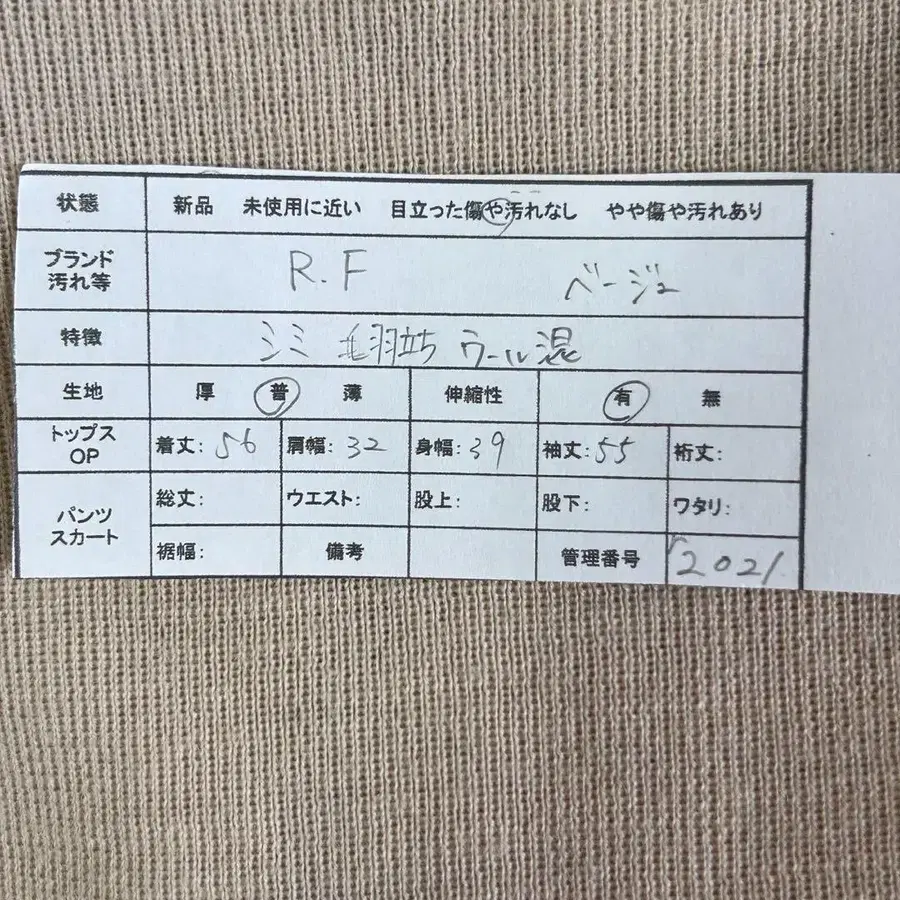 状態 新品 未使用に近い 目立った傷や汚れなし やや傷や汚れあり
ブランド
汚れ等 R.F ベージュ
特徴 シミ 毛羽立ち ウール混
生地 厚 普 薄 伸縮性 有 無
トップス
OP 着丈: 56 肩幅: 32 身幅: 39 袖丈: 55 裄丈:
パンツ
スカート 総丈: ウエスト: 股上: 股下: ワタリ:
裾幅: 備考 管理番号 r2021